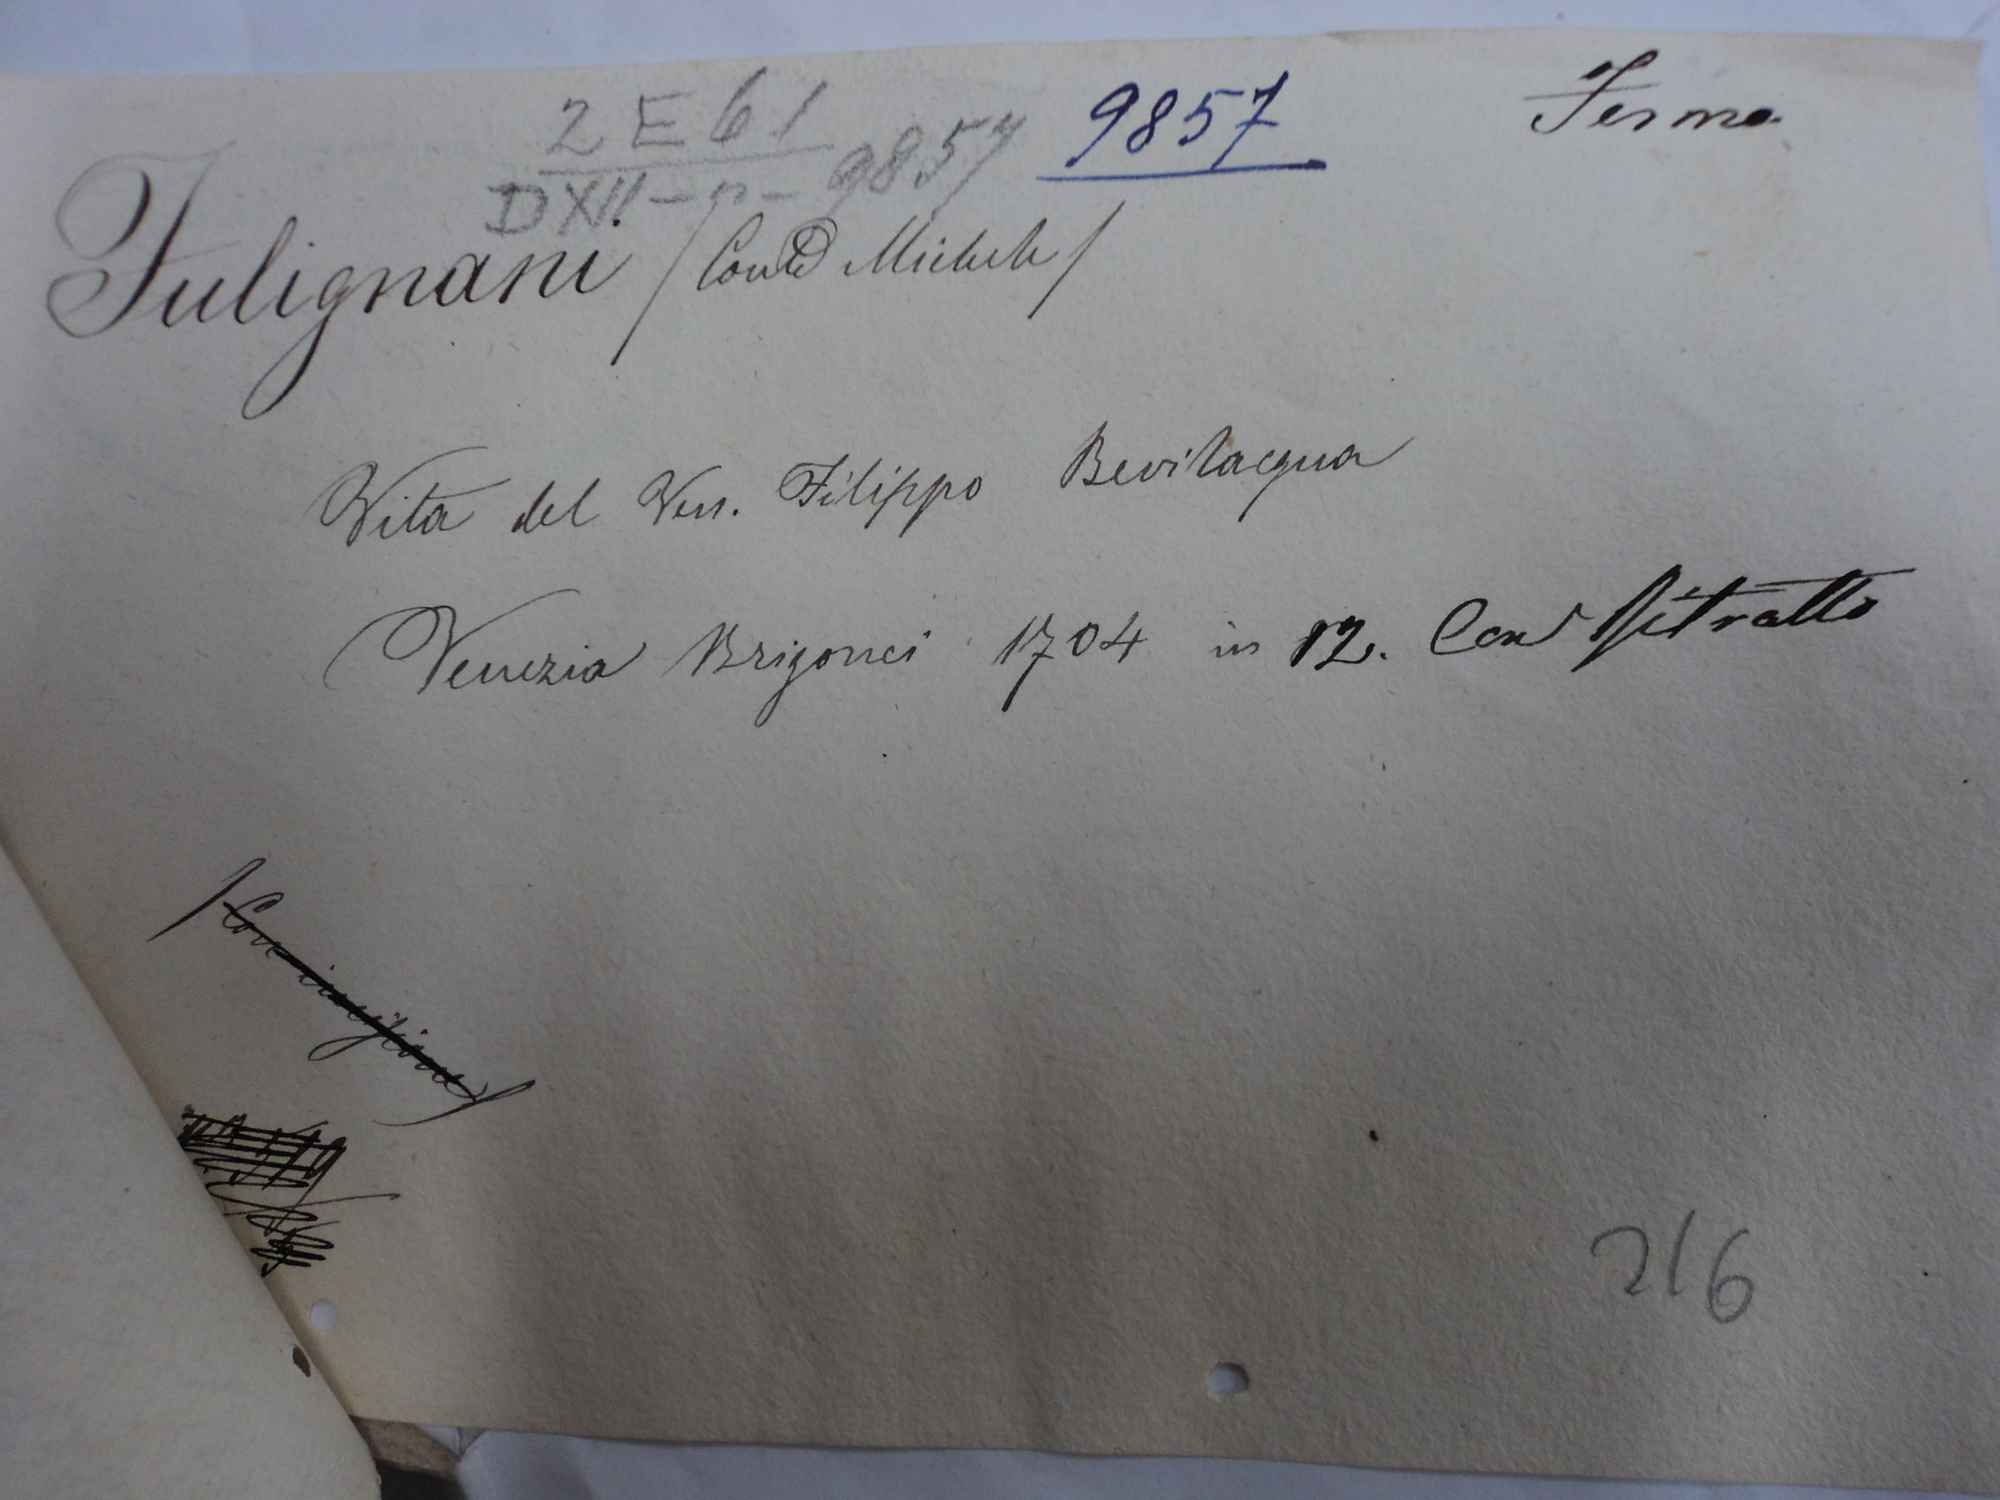 2 E 61
DXII - n - 9857
9857
Fermo
Fulignani /Conte Michele/
Vita del Ven. Filippo Bevilacqua
Venezia Brigonci 1704 in 12. Con Ritratto
216